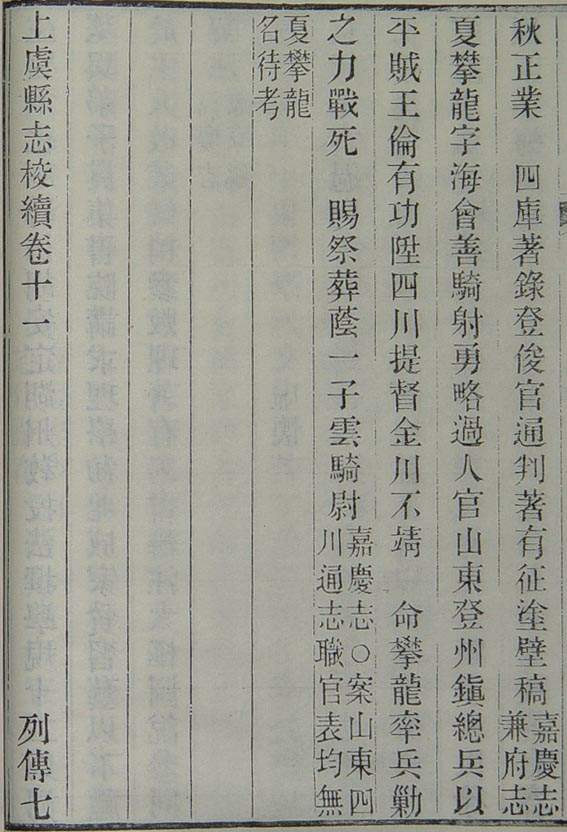 秋正業　四庫著錄登俊官通判著有征塗壁稿嘉慶志兼府志
夏攀龍字海會善騎射勇略過人官山東登州鎭總兵以
平賊王倫有功陞四川提督金川不靖　命攀龍率兵勦
之力戰死　賜祭葬蔭一子雲騎尉嘉慶志○案山東四川通志職官表均無
夏攀龍名待考
上虞縣志校續卷十一　列傳七